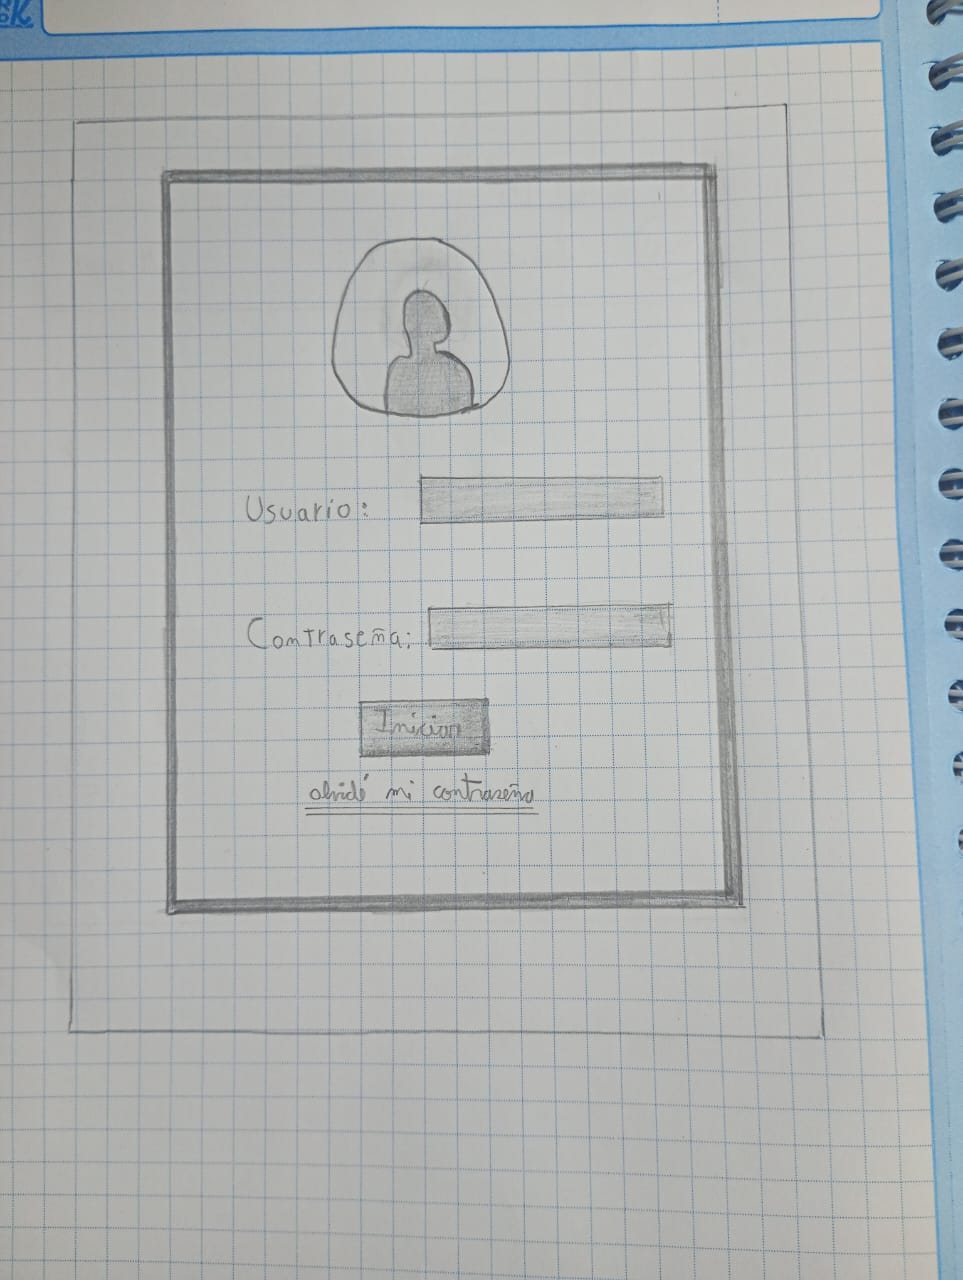 Usuario:
Contraseña:
Iniciar
olvidé mi contraseña